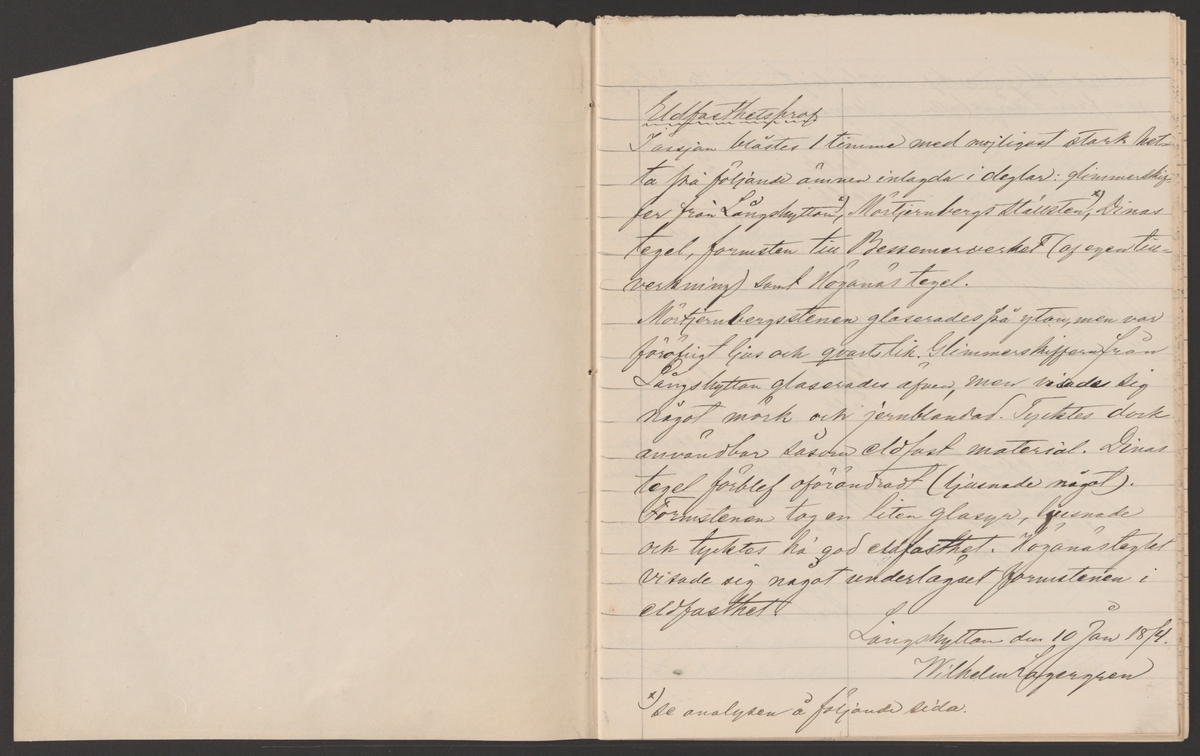 Eldfasthetsprof
I ässjan blåstes 1 timma med möjligast stark het-
ta på följande ämnen inlagda i deglar: glimmerskif-
fer från Långshyttan x), Mörtjernbergs ställsten x), Dinas
tegel, formsten till Bessemerverket (af egen till-
verkning) samt Höganäs tegel.
Mörtjernbergsstenen glaserades på ytan, men var
föröfrigt ljus och qvartslik. Glimmerskiffern från
Långshyttan glaserades äfven, men visade sig
något mörk och jernblandad. Tycktes dock
användbar såsom eldfast material. Dinas
tegel förblef oförändradt (ljusnade något).
Formstenen tog en liten glasyr, ljusnade
och tycktes ha god eldfasthet. Höganästeglet
visade sig något underlägset formstenen i
eldfasthet.
Långshyttan den 10 Jan
Wilhelm Lagergren
x) se analysen å följande sida.